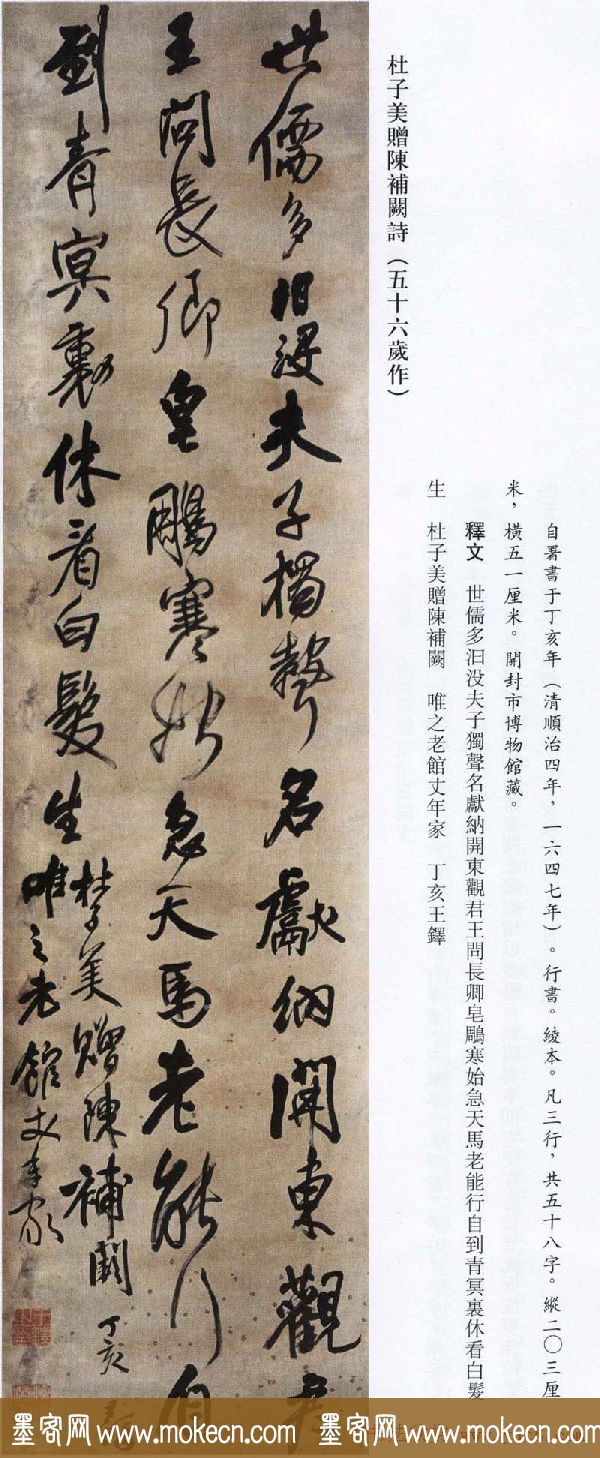 世儒多汨没夫子獨聲名獻納開東觀君
王問長卿皂鵰寒始急天馬老能行自
到青冥裏休看白髮生
杜子美贈陳補闕 丁亥王鐸
唯之老館丈年家
杜子美贈陳補闕詩（五十六歲作）
自署書于丁亥年（清順治四年，一六四七年）。行書。綾本。凡三行，共五十八字。縱二〇三厘
米，橫五一厘米。開封市博物館藏。
釋文 世儒多汨没夫子獨聲名獻納開東觀君王問長卿皂鵰寒始急天馬老能行自到青冥裏休看白髮
生 杜子美贈陳補闕 唯之老館丈年家 丁亥王鐸
墨客网 www.mokecn.com 墨客网 www.mokecn.com